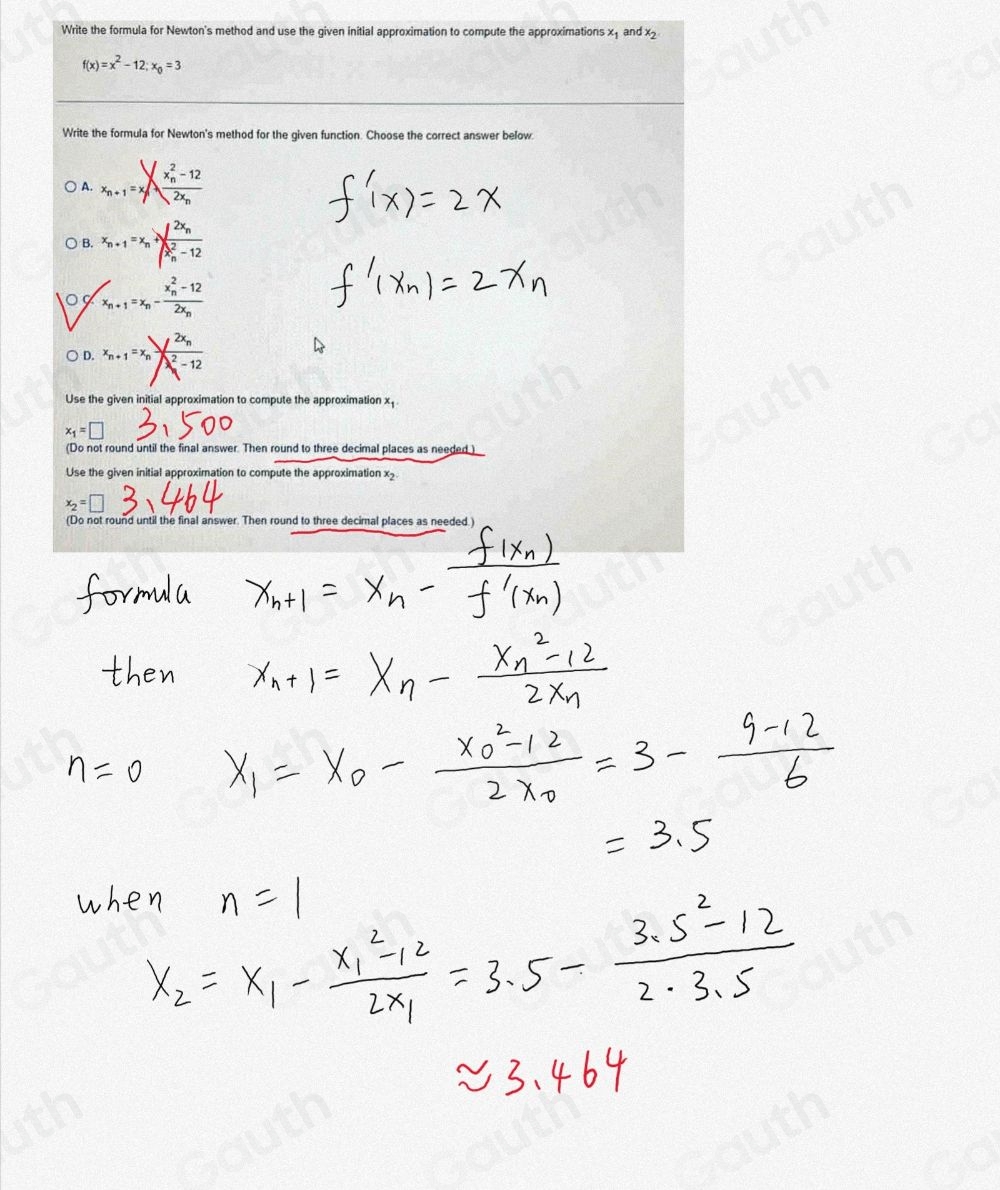 Write the formula for Newton's method and use the given initial approximation to compute the approximations x₁ and x₂.
f(x) = x² - 12; x₀ = 3
Write the formula for Newton's method for the given function. Choose the correct answer below.
A. xₙ₊₁ = xₙ + (xₙ² - 12)/(2xₙ)
f'(x) = 2x
B. xₙ₊₁ = xₙ + (2xₙ)/(xₙ² - 12)
f'(xₙ) = 2xₙ
C. xₙ₊₁ = xₙ - (xₙ² - 12)/(2xₙ)
D. xₙ₊₁ = xₙ - (2xₙ)/(xₙ² - 12)
Use the given initial approximation to compute the approximation x₁.
x₁ = □ 3.500
(Do not round until the final answer. Then round to three decimal places as needed.)
Use the given initial approximation to compute the approximation x₂.
x₂ = □ 3.464
(Do not round until the final answer. Then round to three decimal places as needed.)
formula xₙ₊₁ = xₙ - f(xₙ)/f'(xₙ)
then xₙ₊₁ = xₙ - (xₙ² - 12)/(2xₙ)
n = 0 x₁ = x₀ - (x₀² - 12)/(2x₀) = 3 - (9 - 12)/6
= 3.5
when n = 1
x₂ = x₁ - (x₁² - 12)/(2x₁) = 3.5 - (3.5² - 12)/(2 · 3.5)
≈ 3.464
Gauth